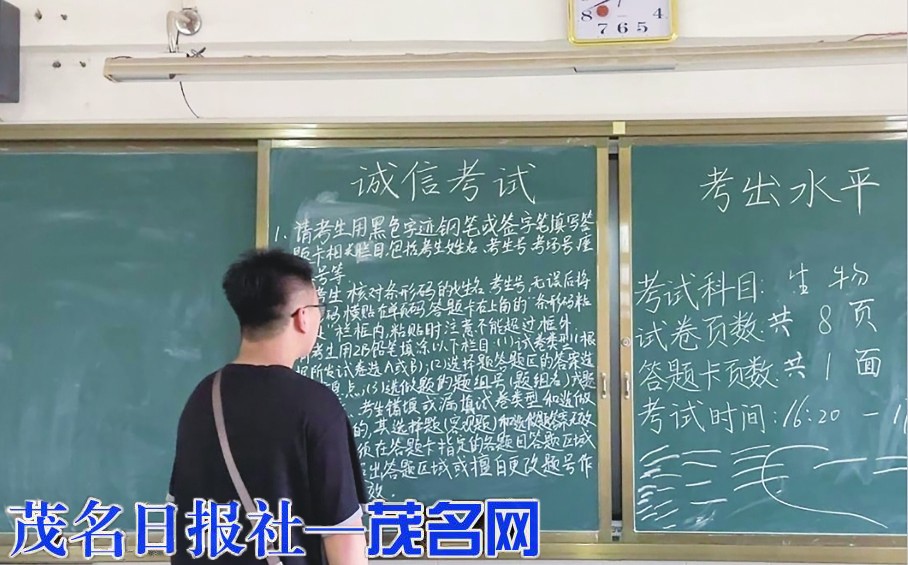 8 4
7 6 5
诚信考试
1、请考生用黑色字迹钢笔或签字笔填写答
题卡相关栏目,包括考生姓名、考生号、考场号、座
号等
考生核对条形码的姓名、考生号,无误后将
码横贴在答题卡右上角的"条形码粘
"栏框内,粘贴时注意不能超过框外
考生用2B铅笔填涂以下栏目:(1)试卷类型(根
所发试卷选A或B);(2)选择题答题区的答案选
点;(3)选做题的题组号(题组名)或题
考生错填或漏填试卷类型和选做
的,其选择题(客观题)和选做题答案无效
须在答题卡指定的各题目答题区域
出答题区域或擅自更改题号作
效.
考出水平
考试科目: 生物
试卷页数:共 8 页
答题卡页数:共 1 面
考试时间:16:20 —
茂名日报社—茂名网